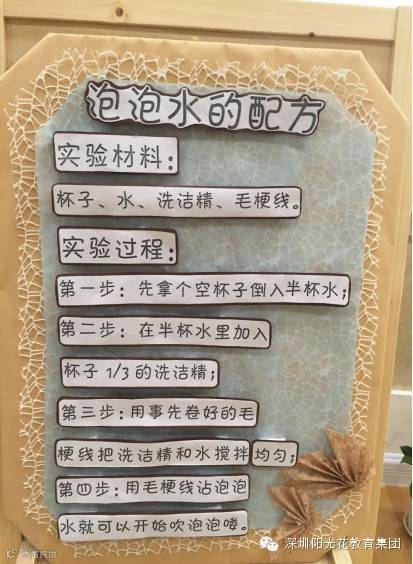 泡泡水的配方
实验材料：
杯子、水、洗洁精、毛梗线。
实验过程：
第一步：先拿个空杯子倒入半杯水；
第二步：在半杯水里加入
杯子 1/3 的洗洁精；
第三步：用事先卷好的毛
梗线把洗洁精和水搅拌均匀；
第四步：用毛梗线沾泡泡
水就可以开始吹泡泡喽。
深圳阳光花教育集团